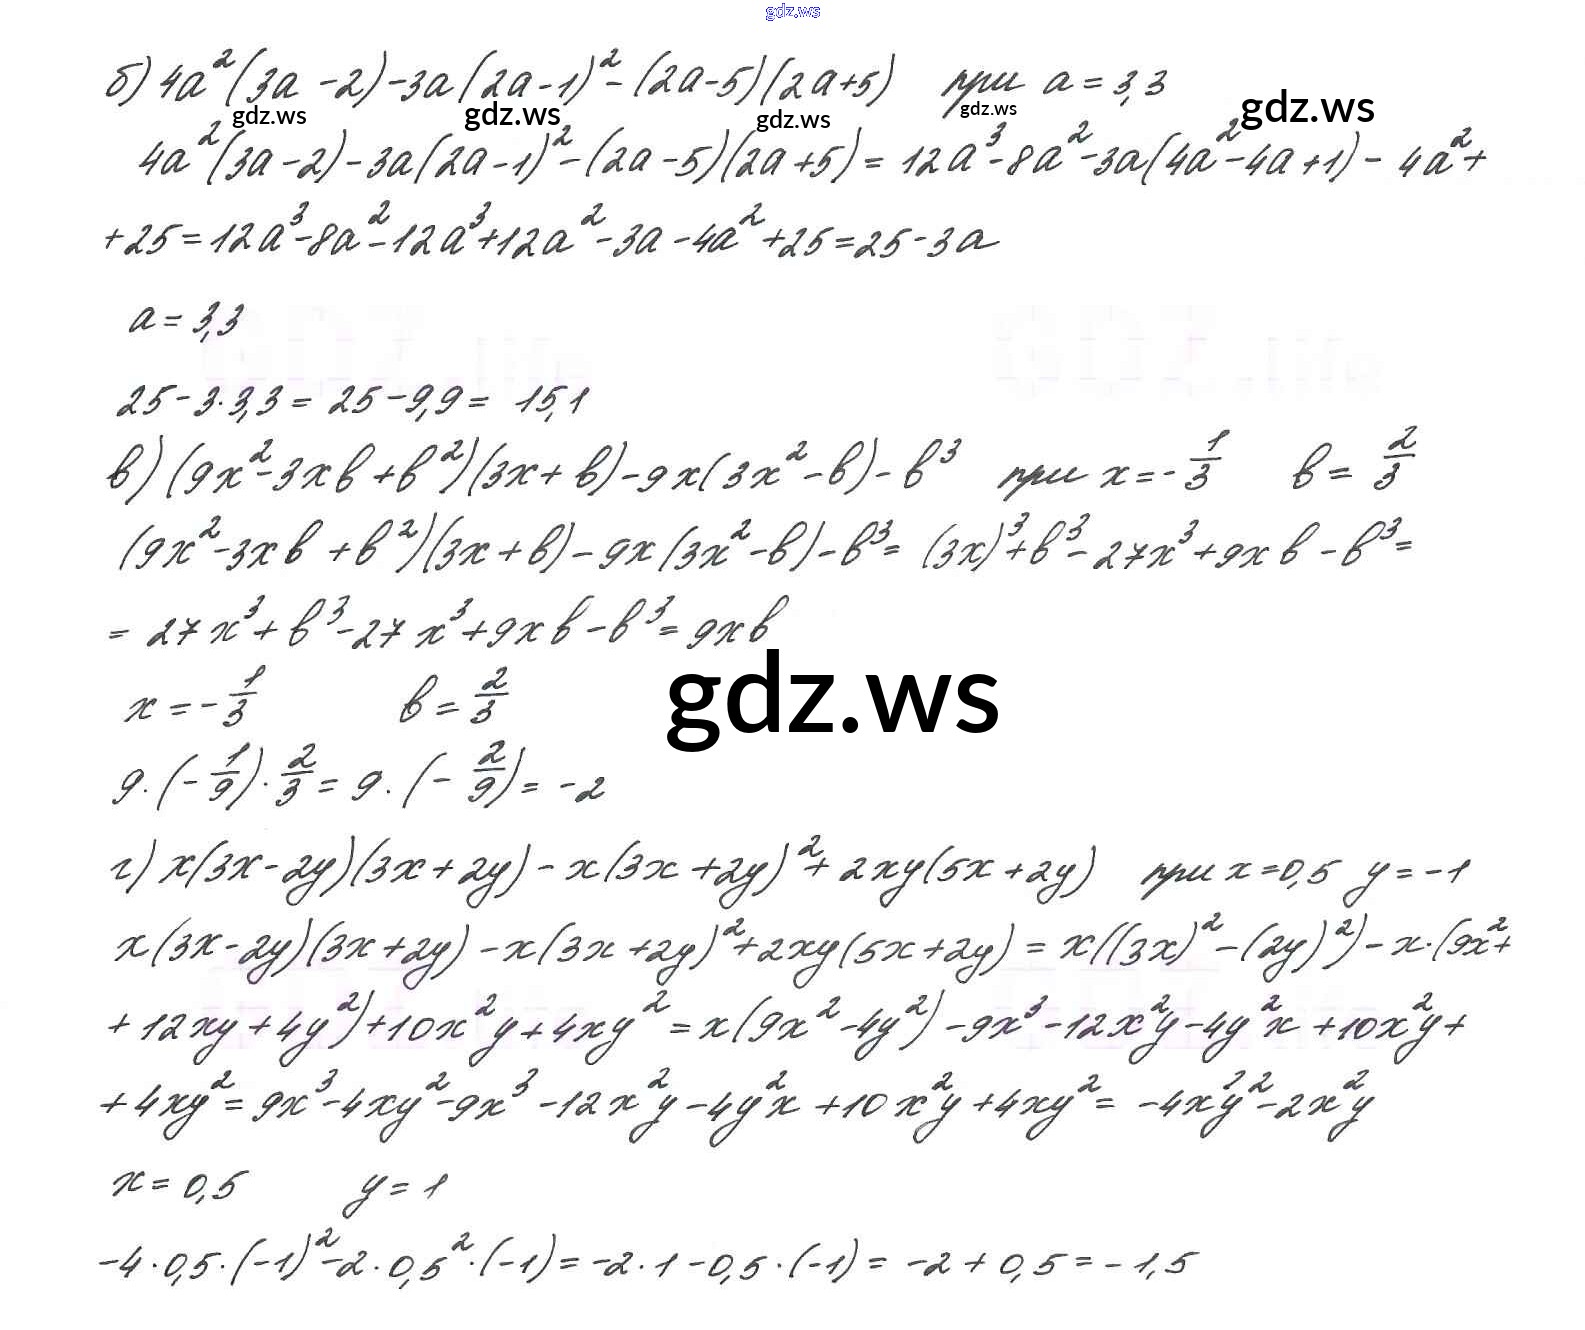 gdz.ws
б) 4a²(3a-2)-3a(2a-1)²-(2a-5)(2a+5) при a=3,3
gdz.ws gdz.ws gdz.ws gdz.ws gdz.ws
4a²(3a-2)-3a(2a-1)²-(2a-5)(2a+5)= 12a³-8a²-3a(4a²-4a+1)- 4a²+
+25=12a³-8a²-12a³+12a²-3a-4a²+25=25-3a
a=3,3
25-3·3,3= 25-9,9= 15,1
в)(9x²-3xb+b²)(3x+b)-9x(3x²-b)-b³ при x=-1/3 b=2/3
(9x²-3xb+b²)(3x+b)-9x(3x²-b)-b³= (3x)³+b³-27x³+9xb-b³=
= 27x³+b³-27x³+9xb-b³=9xb
gdz.ws
x=-1/3 b=2/3
9·(-1/9)·2/3=9·(-2/9)=-2
г) x(3x-2y)(3x+2y)-x(3x+2y)²+2xy(5x+2y) при x=0,5 y=-1
x(3x-2y)(3x+2y)-x(3x+2y)²+2xy(5x+2y)= x((3x)²-(2y)²)-x·(9x²+
+12xy+4y²)+10x²y+4xy²=x(9x²-4y²)-9x³-12x²y-4y²x+10x²y+
+4xy²=9x³-4xy²-9x³-12x²y-4y²x+10x²y+4xy²= -4xy²-2x²y
x=0,5 y=1
-4·0,5·(-1)²-2·0,5²·(-1)=-2·1-0,5·(-1)= -2+0,5=-1,5